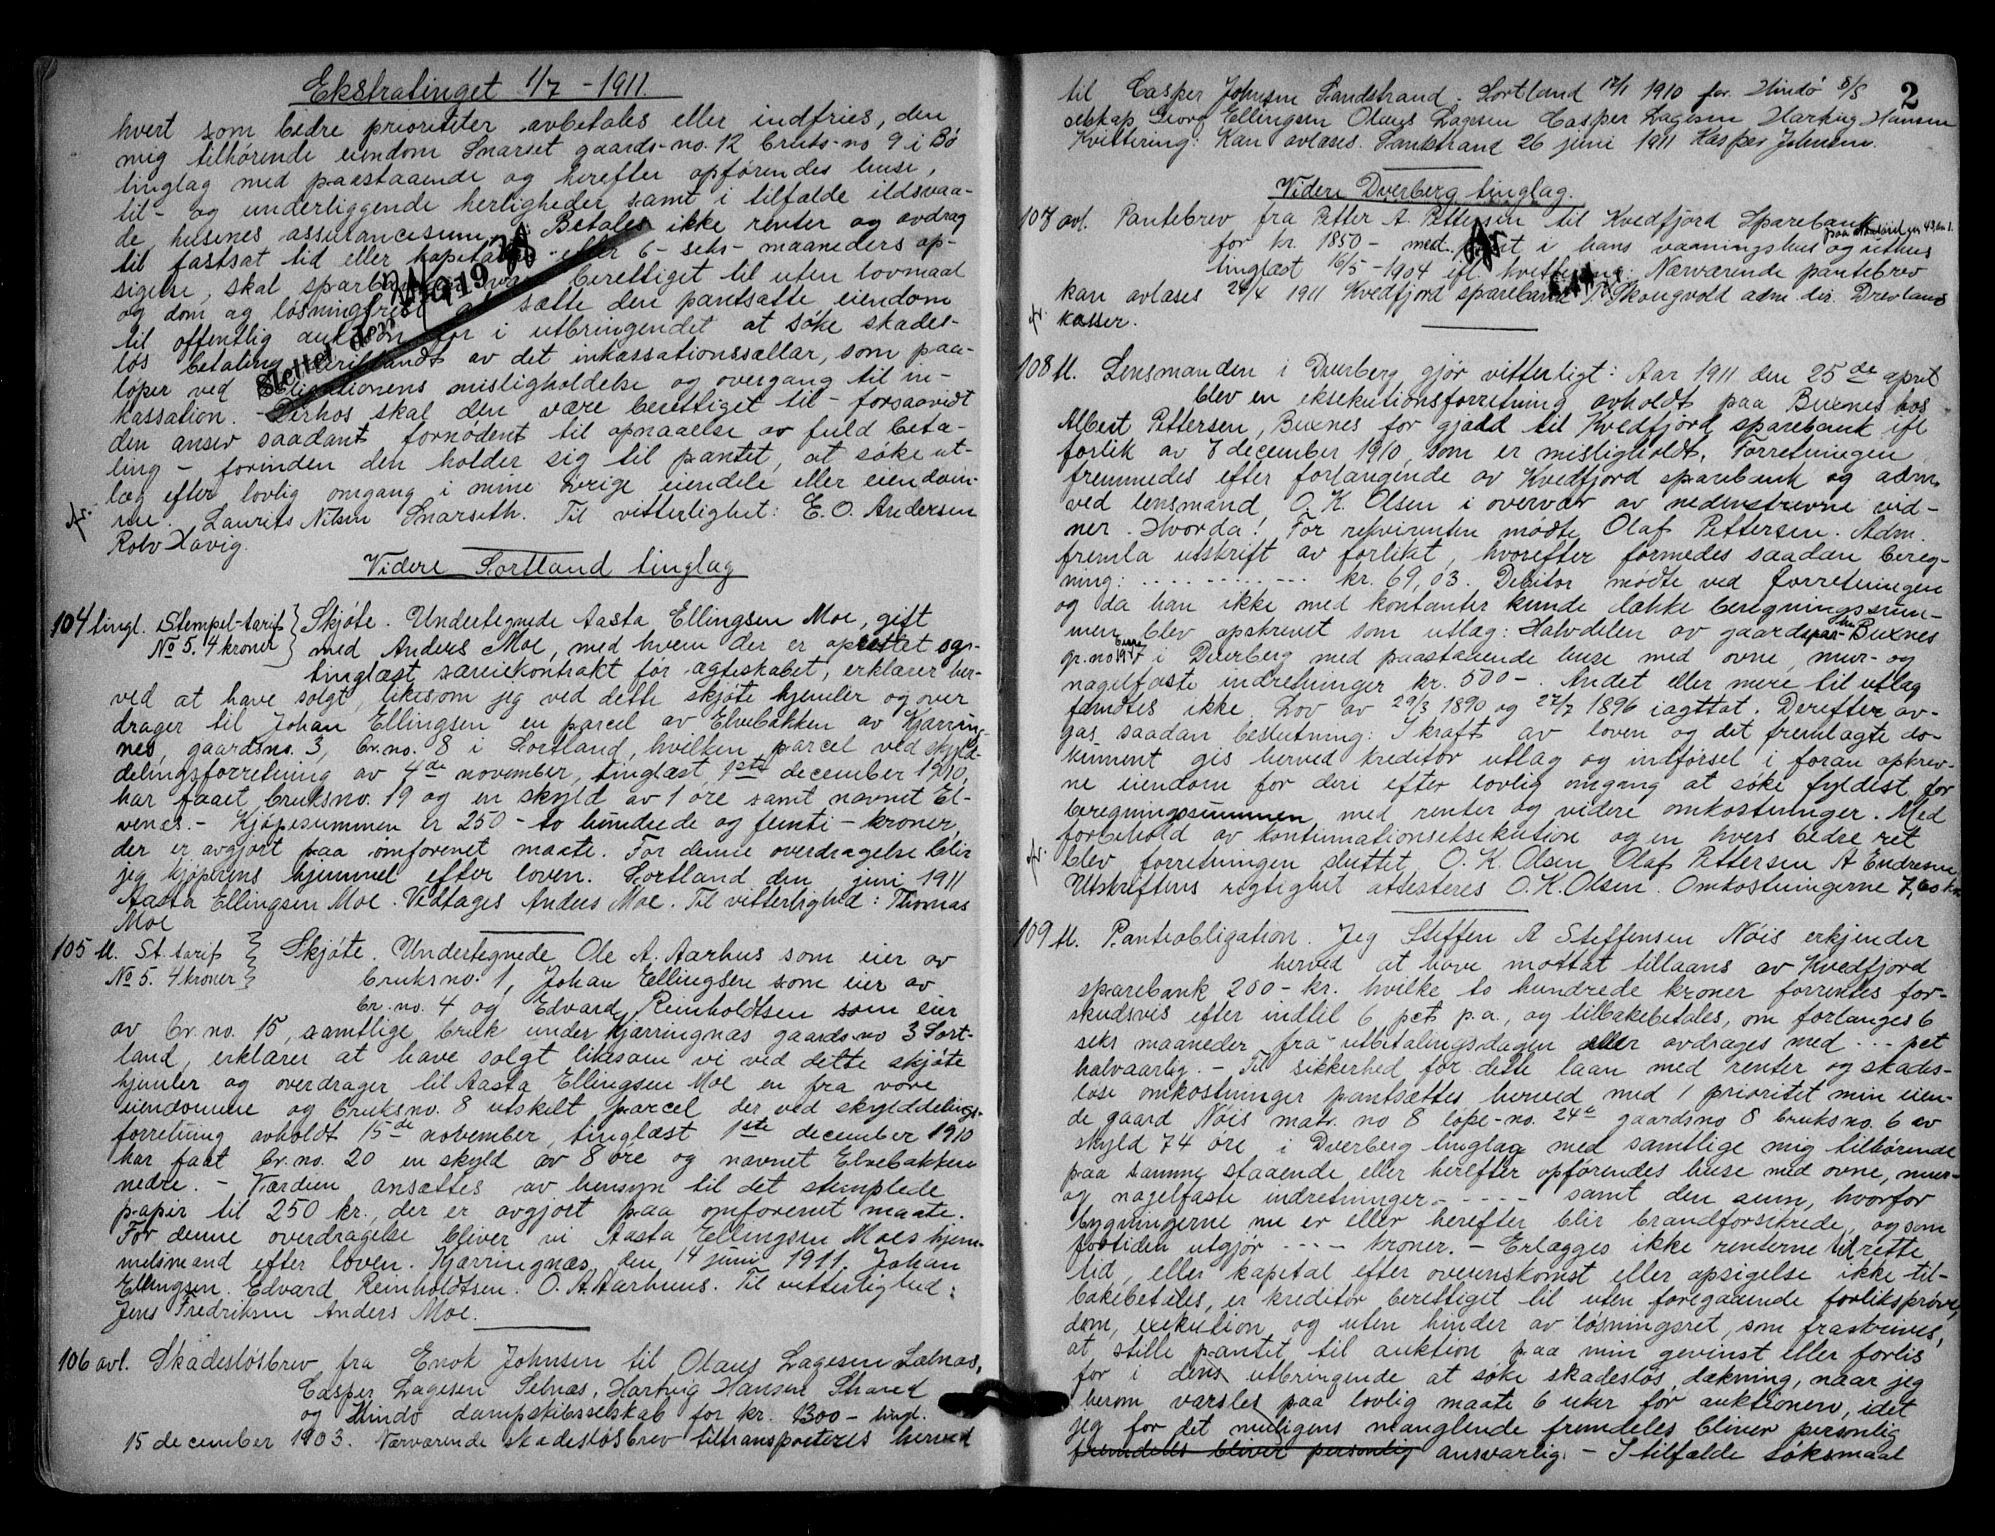 Ekstratinget 1/7 - 1911.
hvert som bedre prioriteter avbetales eller indfries, den
mig tilhørende eiendom Snarset gaards-no. 12 bruks-no 9 i Bø
tinglag med paastaaende og herefter opførendes huse,
til- og underliggende herligheder samt i tilfælde ildsvaa-
de, husenes assurancesum. Betales ikke renter og avdrag
til fastsat tid eller kapitalen efter 6 - seks - maaneders op-
sigelse, skal sparbanken være berettiget til uten lovmaal
og dom og løsningsfrist at sætte den pantsatte eiendom
til offentlig auktion for i utbringendet at søke skades-
løs betaling iberiblandt av det inkassationssallær, som paa-
løper ved obligationens misligholdelse og overgang til in-
kassation. - Derhos skal den være berettiget til - forsaavidt
Slettet den
den anser saadant fornødent til opnaaelse av fuld beta-
ling - forinden den holder sig til pantet, at søke ut-
læg efter lovlig omgang i mine øvrige eiendele eller eiendom-
me. Laurits Nilsen Snarseth. Til vitterlighet: E. O. Andersen
Rolv Xavig.
Videre Sortland tinglag
104 tingl. Stempel-tarif } Skjøte. Undertegnede Aasta Ellingsen Moe, gift
No 5. 4 kroner } med Anders Moe, med hvem der er oprettet og
tinglæst særeiekontrakt før ægteskabet, erklærer her-
ved at have solgt, likesom jeg ved dette skjøte hjemler og over
drager til Johan Ellingsen en parcel av Elvebakken av Kjærring-
nes, gaardsno. 3, br.no. 8 i Sortland, hvilken parcel ved skyld-
delingsforretning av 4de november, tinglæst 1ste december 1910,
har faaet bruksno. 19 og en skyld av 1 øre samt navnet El-
venes. - Kjøpesummen er 250 - to hundrede og femti - kroner,
der er avgjort paa omforenet maate. For denne overdragelse blir
jeg kjøperens hjemmel efter loven. Sortland den juni 1911
Aasta Ellingsen Moe. Vedtages Anders Moe. Til vitterlighed: Thomas
Moe
105 tl. St. tarif } Skjøte. Undertegnede Ole A. Aarhus som eier av
No 5. 4 kroner } bruksno. 1, Johan Ellingsen som eier av
br.no. 4 og Edvard Reinholdtsen som eier
av br. no. 15, samtlige bruk under Kjærringnæs gaards-no 3 Sort-
land, erklærer at have solgt likesom vi ved dette skjøte
hjemler og overdrager til Aasta Ellingsen Moe en fra vore
eiendomme og bruksno. 8 utskilt parcel der ved skylddelings-
forretning avholdt 15de november, tinglæst 1ste december 1910
har faat br. no. 20 en skyld av 8 øre og navnet Elvebakken
nedre. - Værdien ansættes av hensyn til det stemplede
papir til 250 kr., der er avgjort paa omforenet maate.
For denne overdragelse bliver vi Aasta Ellingsen Moes hjem-
melsmænd efter loven. Kjærringnæs den 14 juni 1911. Johan
Ellingsen. Edvard Reinholdtsen. O. A. Aarhuus. Til vitterlighed:
Jens Fredriksen Anders Moe.
106 avl. Skadesløsbrev fra Enok Johnsen til Olaus Lagesen Selnæs,
Casper Lagesen Selnæs, Hartvig Hansen Strand
og Hindø dampskibsselskab for kr. 1300 - tingl.
15 december 1903. Nærværende skadesløsbrev tiltransporteres herved
2
til Casper Johnsen Sandstrand. Sortland 17/1 1910 for Hindø d/s
selskap Georg Ellingsen Olaus Lagesen Casper Lagesen Hartvig Hansen
Kvittering: Kan avlæses. Sandstrand 26 juni 1911 Kasper Johnsen.
Videre Dverberg tinglag.
107 avl. Pantebrev fra Petter A Pettersen til Kvedfjord Sparebank
for kr. 1850 - med pant i hans vaaningshus og uthus
tinglæst 16/5 - 1904 efl. kvittering: Nærværende pantebrev
kan avlæses 24/4 1911 Kvedfjord sparebank Skougvold adm. dir. Drevland
kasser.
108 tl. Lensmanden i Dverberg gjør vitterligt: Aar 1911 den 25de april
blev en eksekutionsforretning avholdt paa Buxnes hos
Albert Pettersen, Buxnes for gjæld til Kvedfjord sparebank ifl
forlik av 7 december 1910, som er misligholdt. Forretningen
fremmedes efter forlangende av Kvedfjord sparebank og adm.
ved lensmand O. K. Olsen i overvær av nedenskrevne vid-
ner. Hvorda! For rekvirenten mødte Olaf Pettersen. Adm.
fremla utskrift av forlikt, hvorefter formedes saadan bereg-
ning: . . . . . . . . kr. 69,03. Debitor mødte ved forretningen
og da han ikke med kontanter kunde dække beregningssum-
men blev opskrevet som utlæg: Halvdelen av gaardspar Buxnes
gr. no 19 i Dverberg med paastaaende huse med ovne, mur- og
nagelfaste indretninger kr. 500 -. Andet eller mere til utlæg
fandtes ikke. Lov av 29/3 1890 og 27/7 1896 iagttat. Derefter av-
gas saadan beslutning: I kraft av loven og det fremlagte do-
kument gis herved kreditor utlæg og indførsel i foran opskrev-
ne eiendom for deri efter lovlig omgang at søke fyldest for
beregningssummen med renter og videre omkostninger. Med
forbehold av kontinuationseksekution og en hvers bedre ret
blev forretningen sluttet. O. K. Olsen Olaf Pettersen A Endresen
Utskriftens rigtighet attesteres O. K. Olsen. Omkostningerne 7,60 kr
109 tl. Panteobligation. Jeg Steffen A Steffensen Nøis erkjender
herved at have mottat tillaans av Kvedfjord
sparebank 200 - kr. hvilke to hundrede kroner forrentes for-
skudsvis efter indtil 6 pct p.a., og tilbakebetales, om forlanges 6
seks maaneder fra utbetalingsdagen eller avdrages med . . . pct
halvaarlig. - Til sikkerhed for dette laan med renter og skades-
løse omkostninger pantsættes herved med 1 prioritet min eien-
de gaard Nøis matr. no 8 løpe-no. 24e gaardsno 8 bruksno. 6 av
skyld 74 øre i Dverberg tinglag med samtlige mig tilhørende
paa samme staaende eller herefter opførendes huse med ovne, mur-
og nagelfaste indretninger - - - - samt den sum, hvorfor
bygningerne nu er eller herefter blir brandforsikrede, og som
fortiden utgjør - - - kroner. - Erlægges ikke renterne til rette
tid, eller kapital efter overenskomst eller opsigelse ikke til-
bakebetales, er kreditor berettiget til uten foregaaende forliksprøve,
dom, exekution og uten hinder av løsningsret, som fraskrives,
at stille pantet til auktion paa min gevinst eller forlis
for i dens utbringende at søke skadesløs dækning, naar jeg
herom varsles paa lovlig maate 6 uker før auktionen, idet
jeg for det muligens manglende fremdeles bliver personlig
fremdeles bliver personlig ansvarlig. - I tilfælde søksmaal